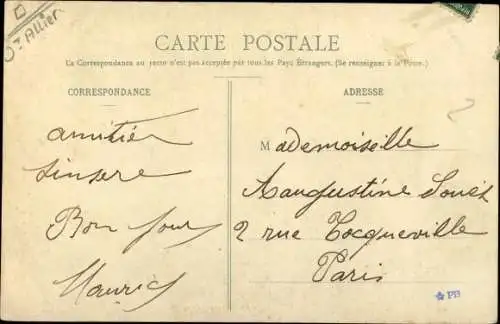 Dt Allier
CARTE POSTALE
La Correspondance au recto n'est pas acceptée par tous les Pays Étrangers. (Se renseigner à la Poste.)
CORRESPONDANCE
ADRESSE
amitiér
sinsere
Bon jour
Mauric
Mademoiselle
Augustine
2 rue Tocqueville
Paris
PB